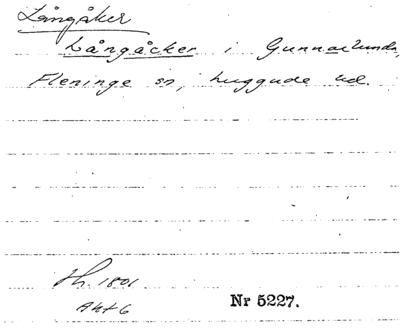 Långåker
Långåcker i Gunnarlunda,
Fleninge sn, Luggude hd.
Hh. 1801
Akt 6
Nr 5227.